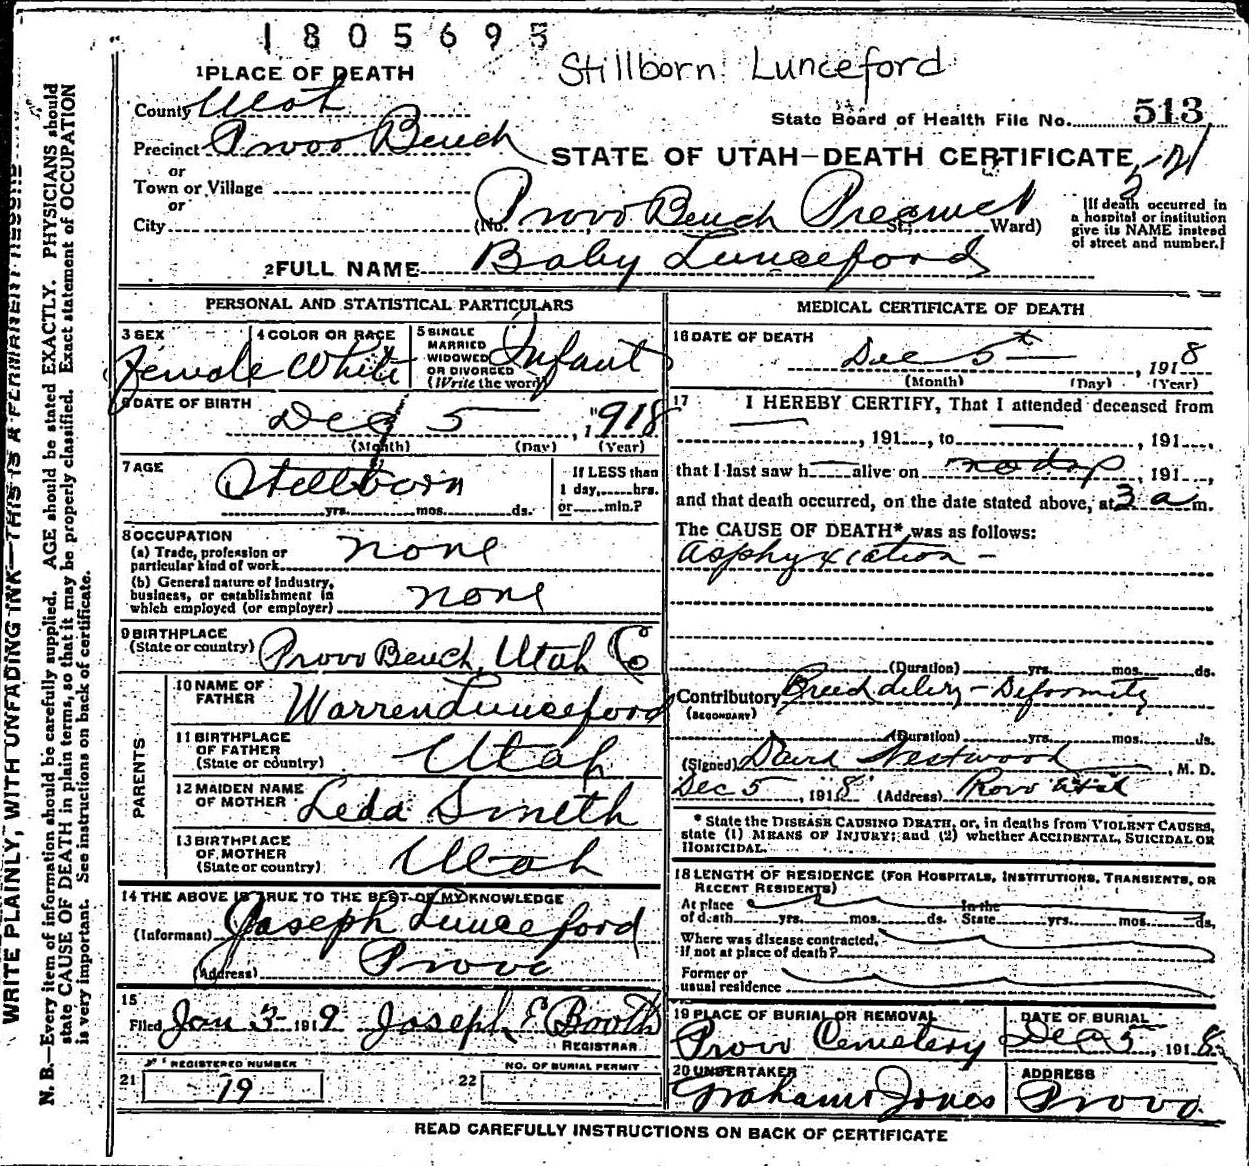 1805695
Stillborn Lunceford
1 PLACE OF DEATH
County Utah
State Board of Health File No. 513
Precinct Provo Bench
STATE OF UTAH—DEATH CERTIFICATE
or
Town or Village
or
City (No. Provo Bench Precinct St.; Ward)
[If death occurred in
a hospital or institution
give its NAME instead
of street and number.]
2 FULL NAME Baby Lunceford
PERSONAL AND STATISTICAL PARTICULARS
3 SEX
Female
4 COLOR OR RACE
White
5 SINGLE
MARRIED
WIDOWED
OR DIVORCED
(Write the word)
Infant
6 DATE OF BIRTH
Dec 5 , 1918
(Month) (Day) (Year)
7 AGE
Stillborn
yrs. mos. ds.
If LESS than
1 day, hrs.
or min.?
8 OCCUPATION
(a) Trade, profession or
particular kind of work none
(b) General nature of Industry,
business, or establishment in
which employed (or employer) none
9 BIRTHPLACE
(State or country) Provo Bench, Utah Co
PARENTS
10 NAME OF
FATHER Warren Lunceford
11 BIRTHPLACE
OF FATHER
(State or country) Utah
12 MAIDEN NAME
OF MOTHER Leda Smith
13 BIRTHPLACE
OF MOTHER
(State or country) Utah
14 THE ABOVE IS TRUE TO THE BEST OF MY KNOWLEDGE
(Informant) Joseph Lunceford
(Address) Provo
15
Filed Jan 3 1919 Joseph E Booth
REGISTRAR
REGISTERED NUMBER
21 19
NO. OF BURIAL PERMIT
22
MEDICAL CERTIFICATE OF DEATH
16 DATE OF DEATH
Dec 5th , 1918
(Month) (Day) (Year)
17 I HEREBY CERTIFY, That I attended deceased from
, 191 , to , 191 ,
that I last saw h alive on , 191 ,
and that death occurred, on the date stated above, at 3 a m.
The CAUSE OF DEATH* was as follows:
Asphyxiation
(Duration) yrs. mos. ds.
Contributory Breech delivery - Deformity
(SECONDARY)
(Duration) yrs. mos. ds.
(Signed) David Westwood , M. D.
Dec 5 , 1918 (Address) Provo Utah
* State the DISEASE CAUSING DEATH, or, in deaths from VIOLENT CAUSES,
state (1) MEANS OF INJURY; and (2) whether ACCIDENTAL, SUICIDAL OR
HOMICIDAL.
18 LENGTH OF RESIDENCE (FOR HOSPITALS, INSTITUTIONS, TRANSIENTS, OR
RECENT RESIDENTS)
At place In the
of death yrs. mos. ds. State yrs. mos. ds.
Where was disease contracted,
if not at place of death?
Former or
usual residence
19 PLACE OF BURIAL OR REMOVAL
Provo Cemetery
DATE OF BURIAL
Dec 5 , 1918
20 UNDERTAKER
Graham Jones
ADDRESS
Provo
READ CAREFULLY INSTRUCTIONS ON BACK OF CERTIFICATE
WRITE PLAINLY, WITH UNFADING INK—THIS IS A PERMANENT RECORD
N. B.—Every item of information should be carefully supplied. AGE should be stated EXACTLY. PHYSICIANS should
state CAUSE OF DEATH in plain terms, so that it may be properly classified. Exact statement of OCCUPATION
is very important. See instructions on back of certificate.